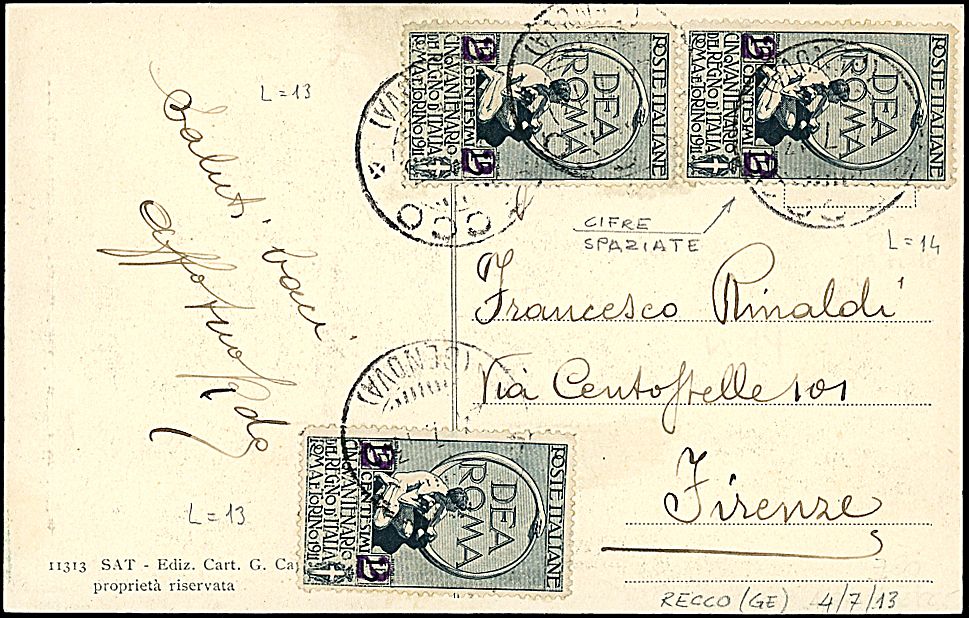 L=13
Saluti baci
affettuosi
POSTE ITALIANE
DEA
ROMA
CENTESIMI
CINQVANTENARIO
DEL REGNO D'ITALIA
ROMA E TORINO 1911
POSTE ITALIANE
DEA
ROMA
CENTESIMI
CINQVANTENARIO
DEL REGNO D'ITALIA
ROMA E TORINO 1911
CIFRE
SPAZIATE
L=14
Francesco Rinaldi
Via Centostelle 101
Firenze
(GENOVA)
POSTE ITALIANE
DEA
ROMA
CENTESIMI
CINQVANTENARIO
DEL REGNO D'ITALIA
ROMA E TORINO 1911
L=13
11313 SAT - Ediz. Cart. G. Ca
proprietà riservata
RECCO (GE) 4/7/13